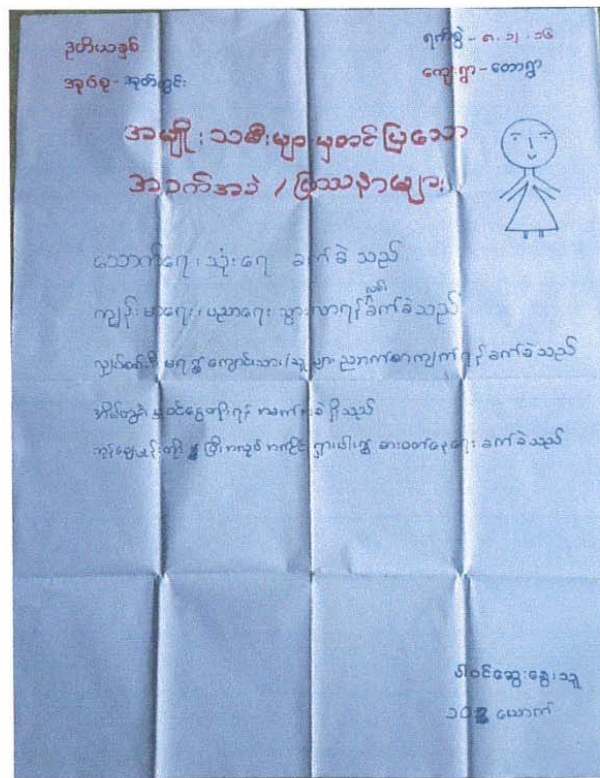 ဒုတိယနှစ်
ရက်စွဲ - ၈.၁၂.၁၆
အုပ်စု - အုတ်တွင်း
ကျေးရွာ - တောရွာ
အမျိုးသမီးများမှတင်ပြသော
အခက်အခဲ / ပြဿနာများ
သောက်ရေး သုံးရေ ခက်ခဲသည်
ကျန်းမာရေး၊ ပညာရေး သွားလာရန် ခက်ခဲသည်
လျှပ်စစ်မီး မရ၍ ကျောင်းသား/သူများ ညဘက်စာကျက်ရန် ခက်ခဲသည်
အိမ်တွင်းမှုဝင်ငွေတိုးရန် အခက်အခဲရှိသည်
ကုန်ဈေးနှုန်းကြီး အလုပ်အကိုင်ရှားပါး၍ စားဝတ်နေရေး ခက်ခဲသည်
ပါဝင်ဆွေးနွေးသူ
ယောက်